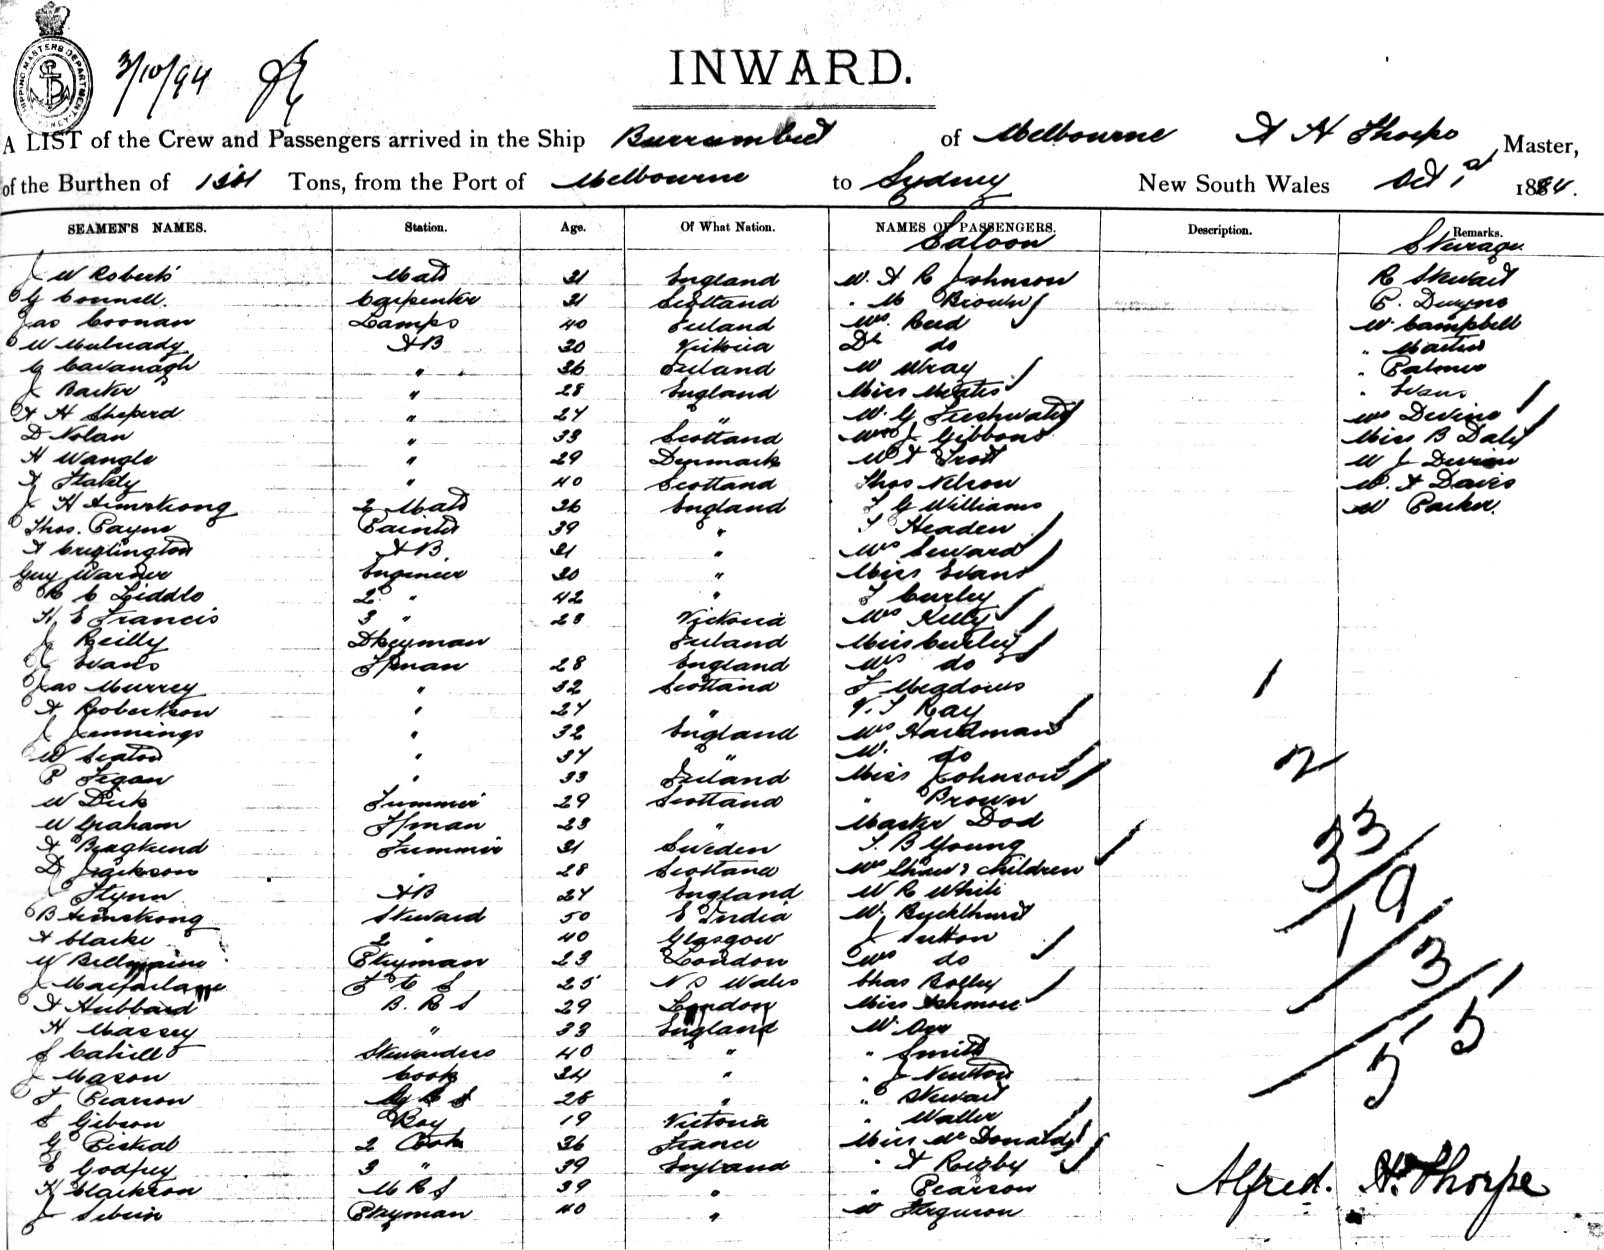 SHIPPING MASTERS DEPARTMENT SYDNEY
3/10/94
INWARD.
A LIST of the Crew and Passengers arrived in the Ship Burrumbeet of Melbourne A H Thorpe Master,
of the Burthen of Tons, from the Port of Melbourne to Sydney New South Wales Oct 1st
SEAMEN'S NAMES. Station. Age. Of What Nation. NAMES OF PASSENGERS. Description. Remarks.
Saloon Steerage
J W Roberts Mate 31 England W. A R Johnson R Stewart
G Connell. Carpenter 31 Scotland " M Brown P. Dwyne
Jas Coonan Lamps 40 Ireland Mrs. Reed W Campbell
W Mulready AB 30 Victoria Dr do " Martin
C Cavanagh " 36 Ireland W Wray " Palmer
J Barker " 28 England Miss " Evans
A H Sheperd " 24 " W. G Freshwater Mrs Devine
D Nolan " 33 Scotland Mrs J Gibbons Miss B Daly
H Wangle " 29 Denmark W A Trott W J
A " 40 Scotland Thos Nelson W. A Davis
J H Armstrong 2 Mate 36 England T G Williams W Parker.
Thos. Payne Painter 39 " T Headen
A Criglington AB 21 " Mrs Seward
Guy Warner Engineer 30 " Miss Evans
R C Liddle 2 " 42 " T Curley
H E Francis 3 " 28 Victoria Mrs Kelly
J Reilly Dkeyman Ireland Miss Curley
J Evans Fman 28 England Mrs do
Jas Murrey " 32 Scotland F Meadows
A Robertson " 24 " V. T Ray
J Jennings " 32 England Mrs Hardman
W Seaton " 34 " W. do
P Fegan " 33 Ireland Miss Johnson
W Dick Trimmer 29 Scotland " Brown
W Graham F/man 23 " Master Dod
A Trimmer 31 Sweden T. B Young
D Jackson " 28 Scotland Mrs Shaw & children
Flynn AB 24 England W R White
B Armstrong Steward 50 E India W.
A Clarke 2 " 40 Glasgow J Sutton
W Pkyman 23 London Mrs do
J Macfarlane F C S 25 N S Wales Chas Bolley
A Hubbard B. R S 29 London Miss Ashmore
H Massey " 33 England W. Orr
J Cahill Stewardess 40 " " Smith
J Mason Cook 34 " " J Newton
T Pearson 28 " " Stewart
S Gibson Boy 19 Victoria " Waller
G Piskal 2 Cook 36 France Miss McDonald
E Godfrey 3 " 39 England " A Rigby
H Clarkson M R S 39 " " Pearson
J Pkyman 40 " W Ferguson
1
2
33
19
3
5
5
Alfred. H. Thorpe